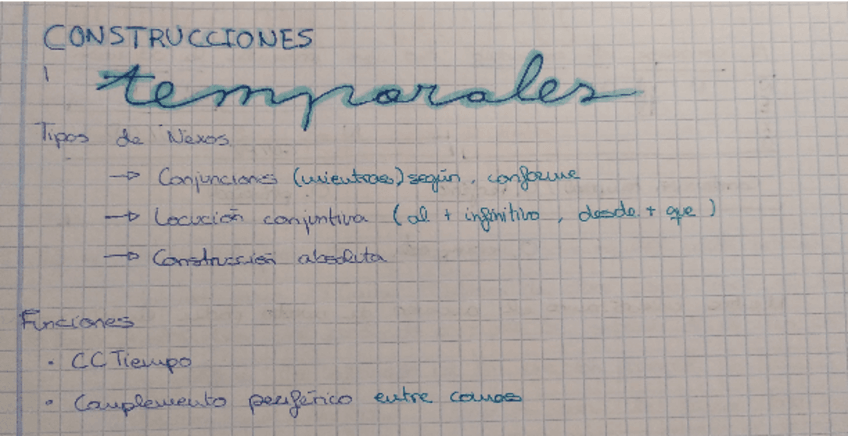 CONSTRUCCIONES
temporales
Tipos de Nexos
→ Conjunciones (mientras) según, conforme
→ Locución conjuntiva (al + infinitivo, desde + que)
→ Construcción absoluta
Funciones
• CC Tiempo
• Complemento periférico entre comas